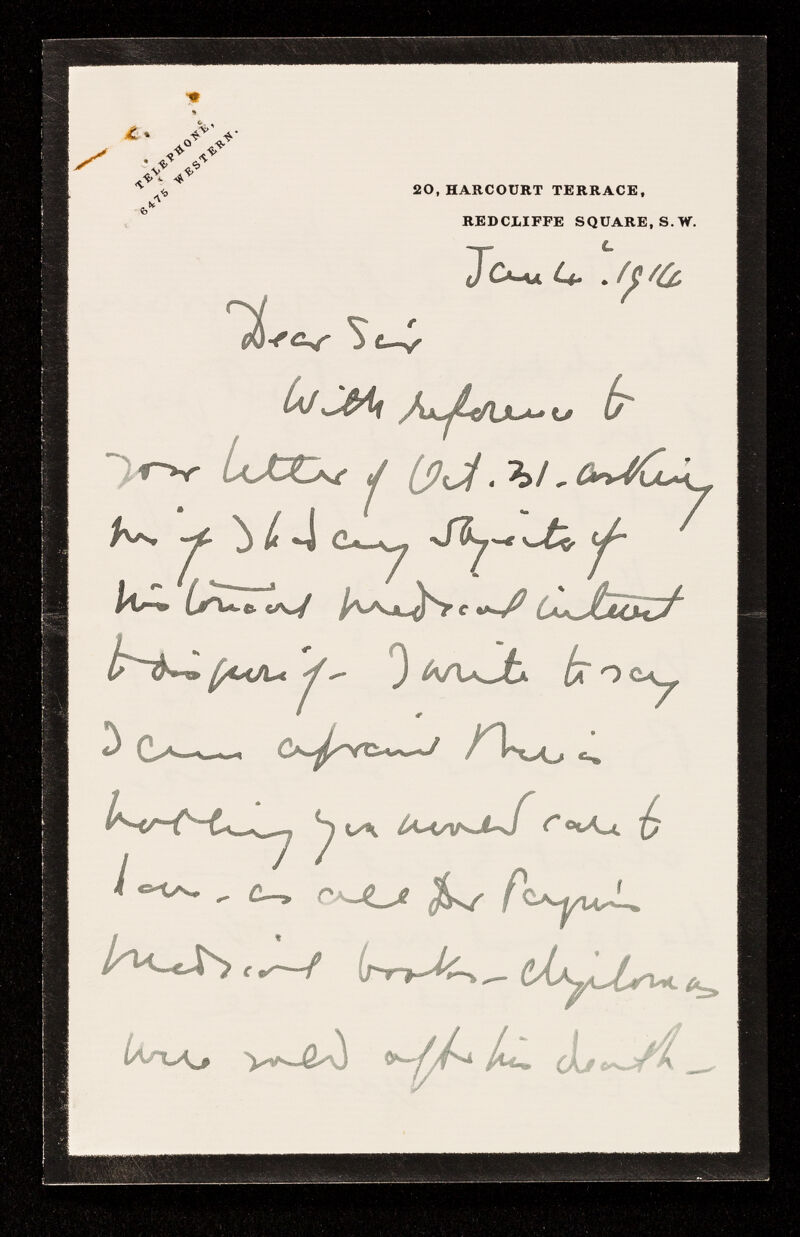 TELEPHONE,
6475 WESTERN.
20, HARCOURT TERRACE,
REDCLIFFE SQUARE, S.W.
Jan 4th. 1914
Dear Sir
With reference to
your letter of Oct. 31. asking
me if I had any objects of
historical medical interest
to dispose of - I write to say
I am afraid there is
nothing you would care to
have - as all Dr
medical books - diplomas
were sold after his death -